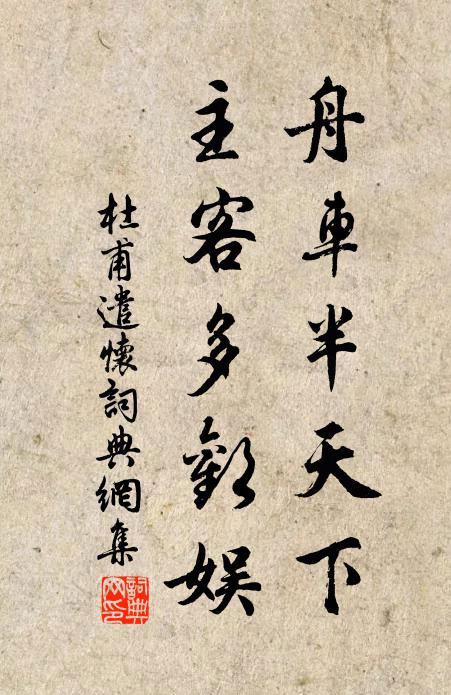 舟車半天下
主客多歡娱
杜甫遣懷詞典網集
詞典网印